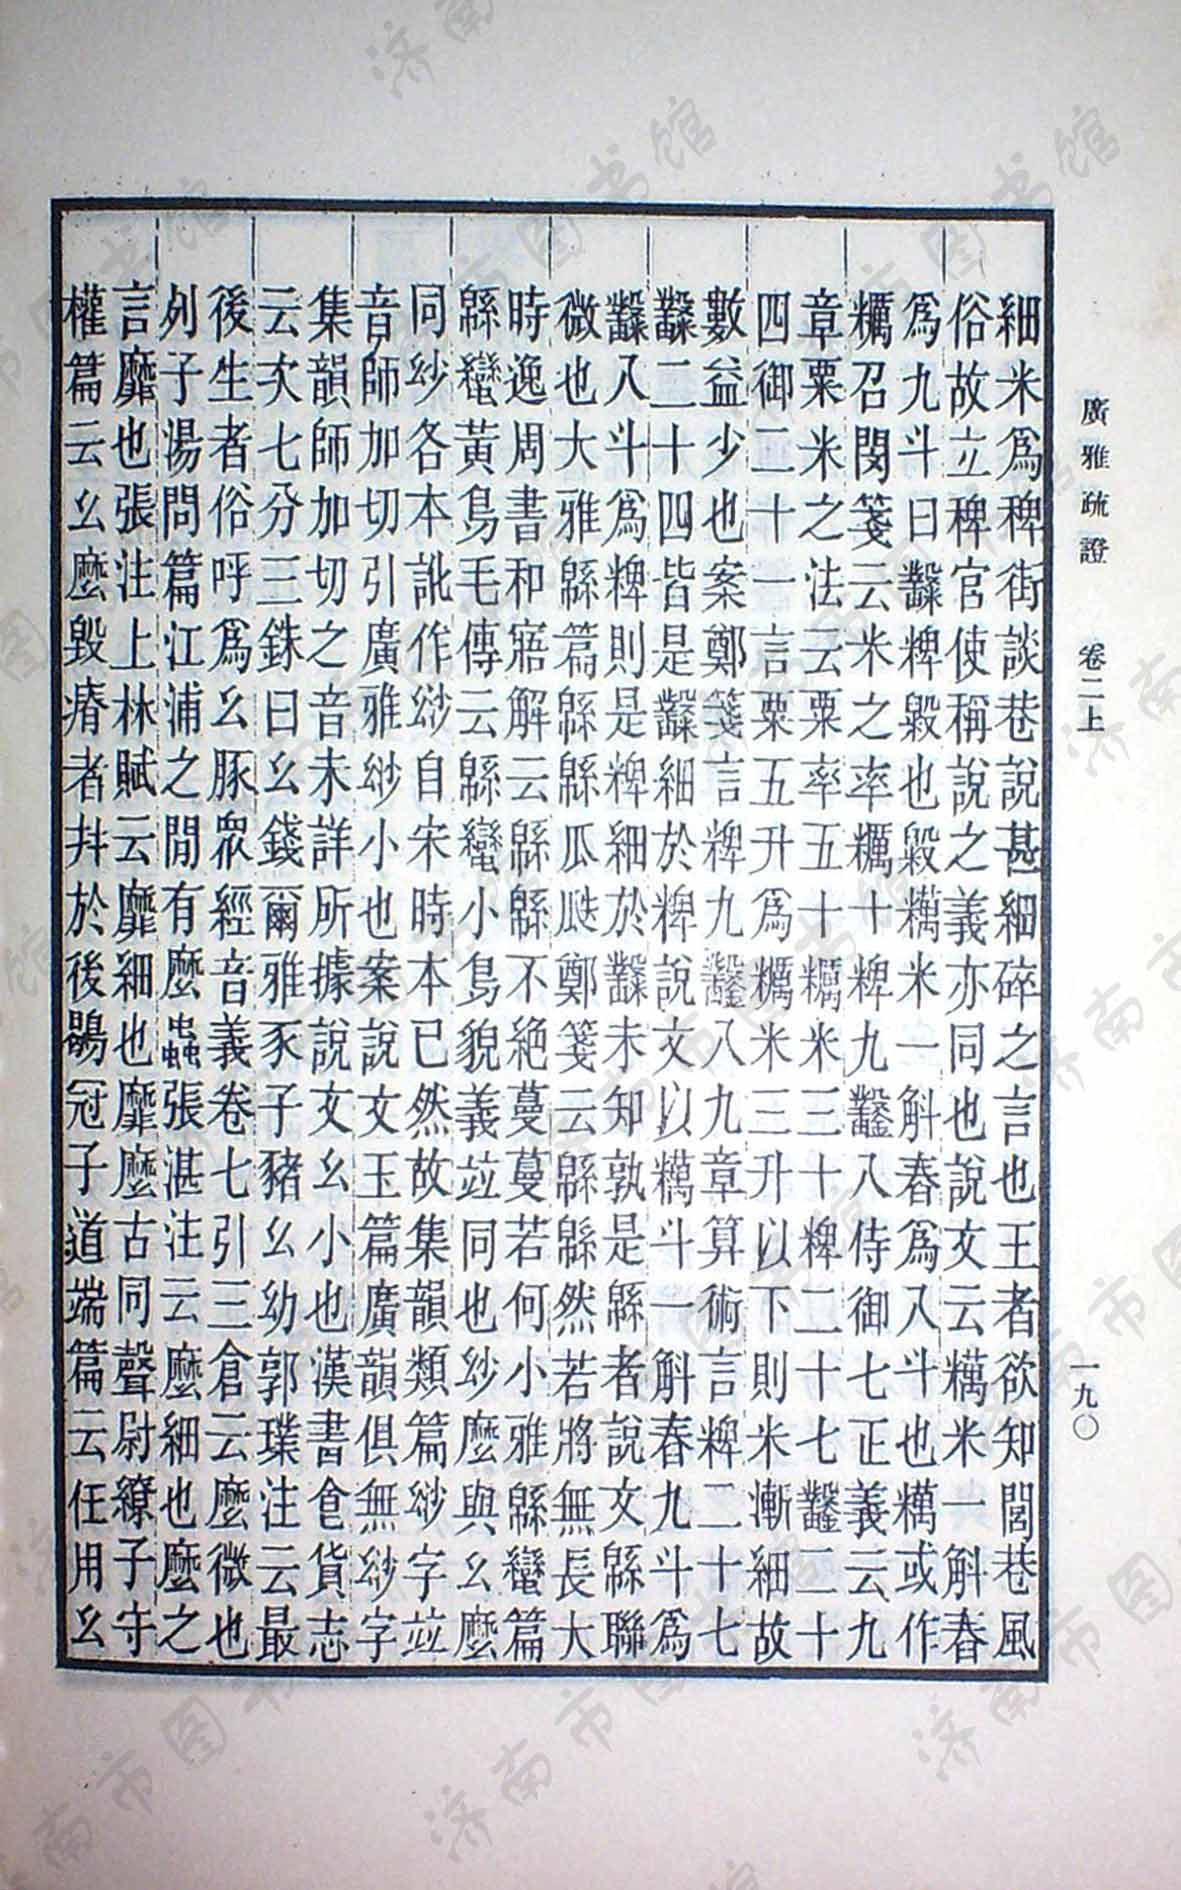 廣雅疏證　卷二上　一九〇
細米爲稗街談巷說甚細碎之言也王者欲知閭巷風
俗故立稗官使稱說之義亦同也說文云糲米一斛舂
爲九斗曰糳粺毇也毇糲米一斛舂爲八斗也糲或作
糲召閔箋云米之率糲十粺九鑿八侍御七正義云九
章粟米之法云粟率五十糲米三十粺二十七鑿二十
四御二十一言粟五升爲糲米三升以下則米漸細故
數益少也案鄭箋言粺九鑿八九章算術言粺二十七
糳二十四皆是糳細於粺說文以糲斗一斛舂九斗爲
糳八斗爲粺則是粺細於糳未知孰是緜者說文緜聯
微也大雅緜篇緜緜瓜瓞鄭箋云緜緜然若將無長大
時逸周書和寤解云緜緜不絕蔓蔓若何小雅緜蠻篇
緜蠻黃鳥毛傳云緜蠻小鳥貌義竝同也紗麼與幺麼
同紗各本訛作紗自宋時本已然故集韻類篇紗字竝
音師加切引廣雅紗小也案說文玉篇廣韻俱無紗字
集韻師加切之音未詳所據說文幺小也漢書食貨志
云次七分三銖曰幺錢爾雅豕子豬幺幼郭璞注云最
後生者俗呼爲幺豚眾經音義卷七引三倉云麼微也
列子湯問篇江浦之閒有麼蟲張湛注云麼細也麼之
言靡也張注上林賦云靡細也靡麼古同聲尉繚子守
權篇云幺麼毀瘠者幷於後鶡冠子道端篇云任用幺